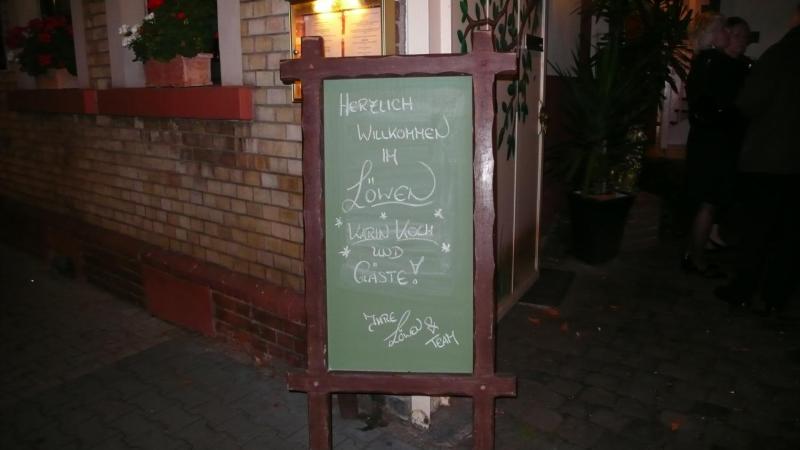 HERZLICH
WILLKOMMEN
IM
LÖWEN
KARIN KOCH
UND
GÄSTE!
IHRE
LÖWEN &
TEAM